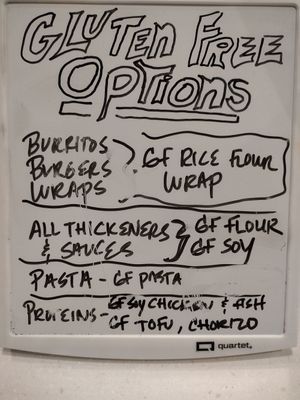 GLUTEN FREE
OPTIONS
BURRITOS
BURGERS
WRAPS
GF RICE FLOUR
WRAP
ALL THICKENERS
& SAUCES
GF FLOUR
GF SOY
PASTA - GF PASTA
PROTEINS - GF SOY CHICKEN & FISH
GF TOFU, CHORIZO
quartet.